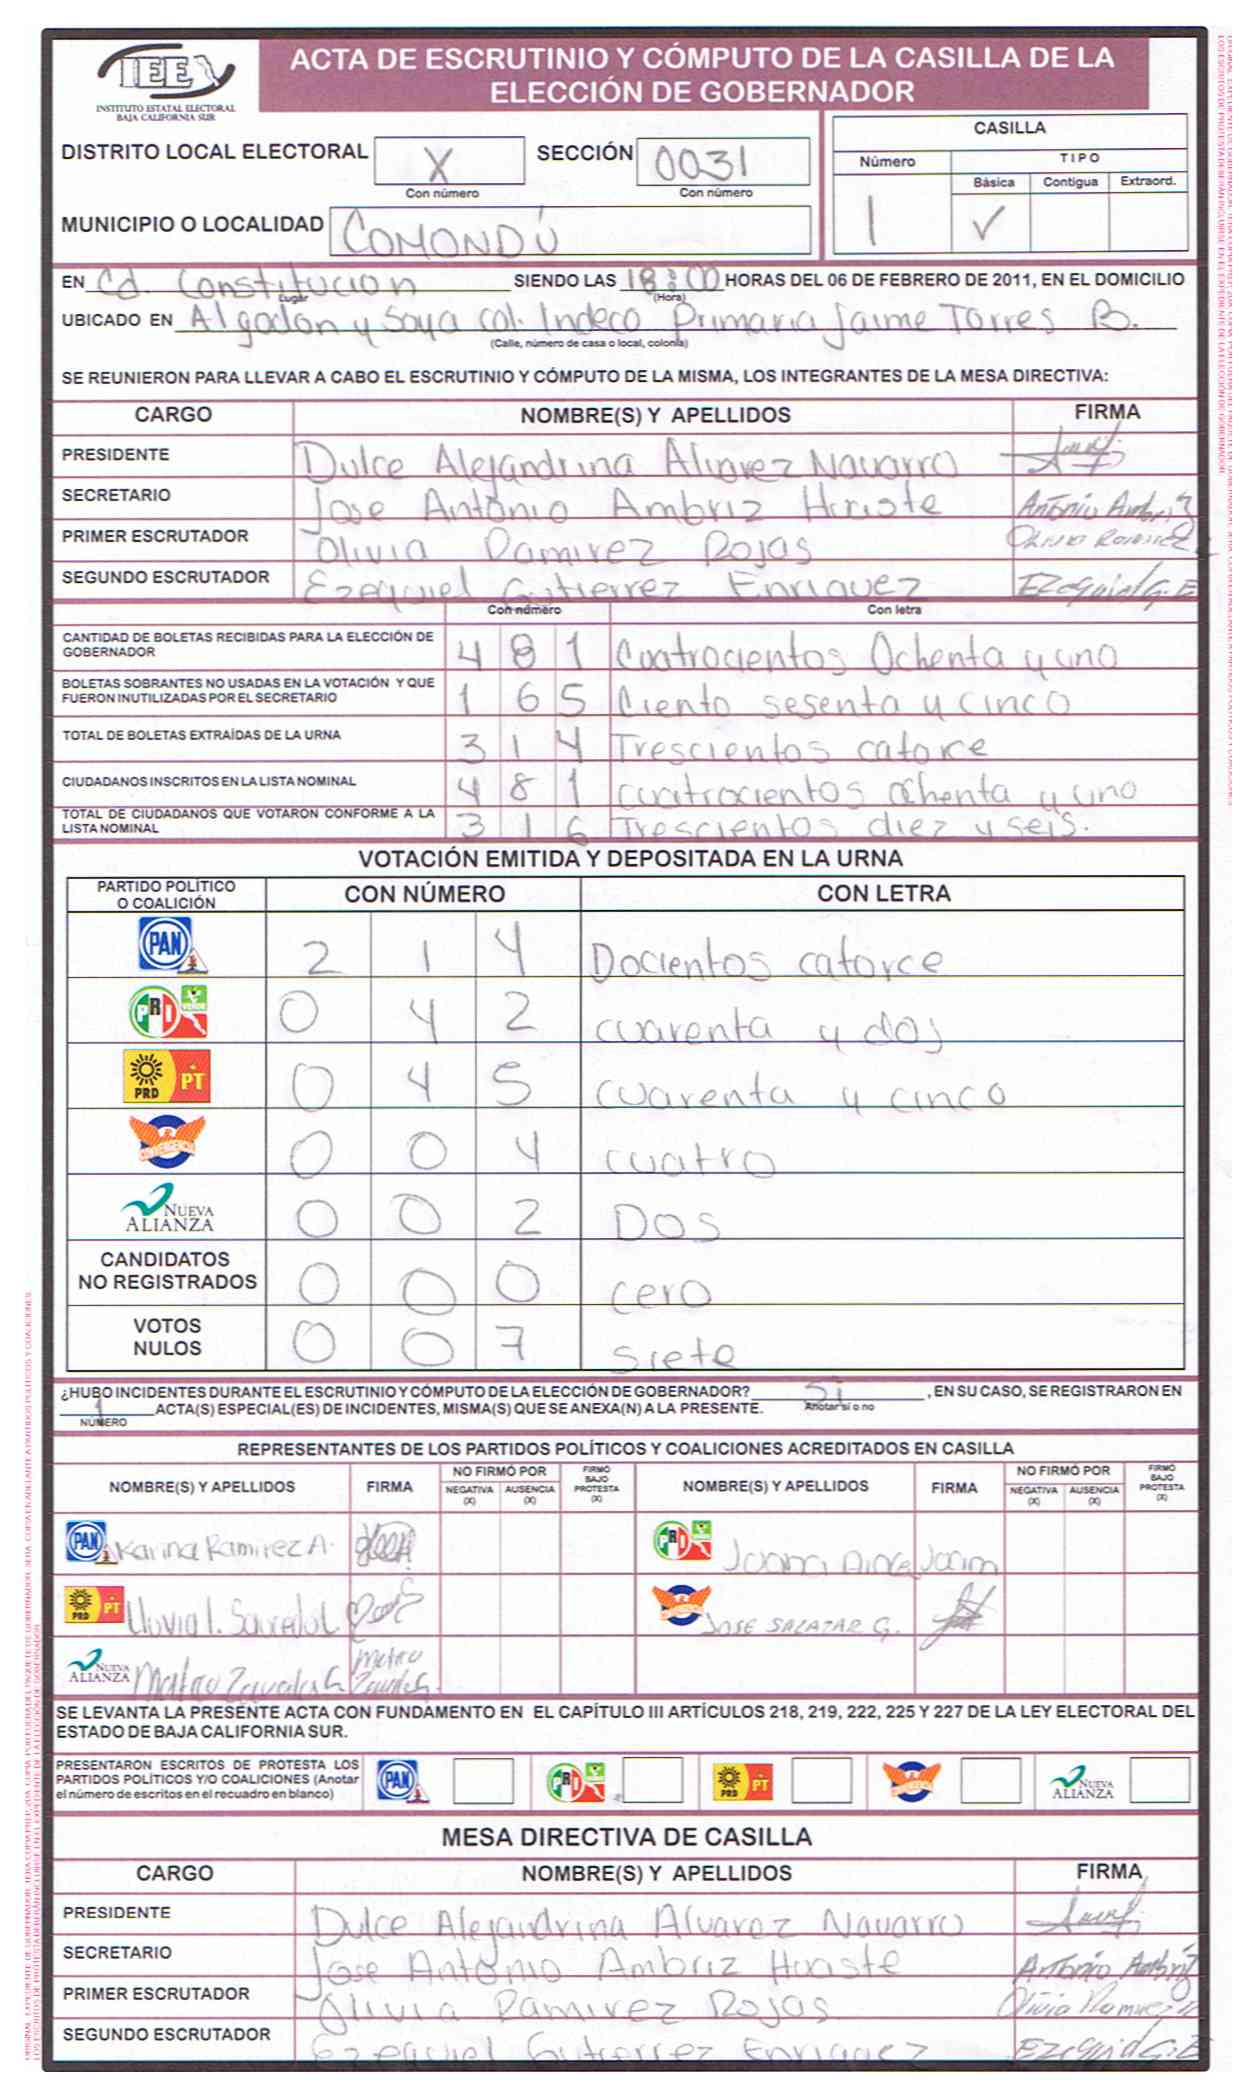 IEE
INSTITUTO ESTATAL ELECTORAL
BAJA CALIFORNIA SUR
ACTA DE ESCRUTINIO Y CÓMPUTO DE LA CASILLA DE LA
ELECCIÓN DE GOBERNADOR
DISTRITO LOCAL ELECTORAL X SECCIÓN 0031
Con número Con número
MUNICIPIO O LOCALIDAD COMONDÚ
CASILLA
Número TIPO
Básica Contigua Extraord.
1 ✓
EN Cd. Constitucion SIENDO LAS 18:00 HORAS DEL 06 DE FEBRERO DE 2011, EN EL DOMICILIO
Lugar (Hora)
UBICADO EN Algodón y Soya col. Indeco Primaria Jaime Torres B.
(Calle, número de casa o local, colonia)
SE REUNIERON PARA LLEVAR A CABO EL ESCRUTINIO Y CÓMPUTO DE LA MISMA, LOS INTEGRANTES DE LA MESA DIRECTIVA:
CARGO NOMBRE(S) Y APELLIDOS FIRMA
PRESIDENTE Dulce Alejandrina Alvarez Navarro
SECRETARIO Jose Antonio Ambriz Antonio Ambriz
PRIMER ESCRUTADOR Olivia Ramirez Rojas Olivia Ramirez
SEGUNDO ESCRUTADOR Ezequiel Gutierrez Enriquez Ezequiel G. E
Con número Con letra
CANTIDAD DE BOLETAS RECIBIDAS PARA LA ELECCIÓN DE
GOBERNADOR 4 8 1 Cuatrocientos Ochenta y uno
BOLETAS SOBRANTES NO USADAS EN LA VOTACIÓN Y QUE
FUERON INUTILIZADAS POR EL SECRETARIO 1 6 5 Ciento sesenta y cinco
TOTAL DE BOLETAS EXTRAÍDAS DE LA URNA 3 1 4 Trescientos catorce
CIUDADANOS INSCRITOS EN LA LISTA NOMINAL 4 8 1 cuatrocientos ochenta y uno
TOTAL DE CIUDADANOS QUE VOTARON CONFORME A LA
LISTA NOMINAL 3 1 6 Trescientos diez y seis.
VOTACIÓN EMITIDA Y DEPOSITADA EN LA URNA
PARTIDO POLÍTICO
O COALICIÓN CON NÚMERO CON LETRA
PAN 2 1 4 Docientos catorce
PRI VERDE 0 4 2 cuarenta y dos
PRD PT 0 4 5 cuarenta y cinco
CONVERGENCIA 0 0 4 cuatro
NUEVA ALIANZA 0 0 2 DOS
CANDIDATOS
NO REGISTRADOS 0 0 0 cero
VOTOS
NULOS 0 0 7 siete
¿HUBO INCIDENTES DURANTE EL ESCRUTINIO Y CÓMPUTO DE LA ELECCIÓN DE GOBERNADOR? Si , EN SU CASO, SE REGISTRARON EN
Anotar sí o no
1 ACTA(S) ESPECIAL(ES) DE INCIDENTES, MISMA(S) QUE SE ANEXA(N) A LA PRESENTE.
NÚMERO
REPRESENTANTES DE LOS PARTIDOS POLÍTICOS Y COALICIONES ACREDITADOS EN CASILLA
NOMBRE(S) Y APELLIDOS FIRMA NO FIRMÓ POR NEGATIVA (X) AUSENCIA (X) FIRMÓ BAJO PROTESTA (X) NOMBRE(S) Y APELLIDOS FIRMA NO FIRMÓ POR NEGATIVA (X) AUSENCIA (X) FIRMÓ BAJO PROTESTA (X)
PAN Karina Ramirez A. PRI VERDE
PRD PT Lluvia I. CONVERGENCIA JOSE SALAZAR G.
NUEVA ALIANZA
SE LEVANTA LA PRESENTE ACTA CON FUNDAMENTO EN EL CAPÍTULO III ARTÍCULOS 218, 219, 222, 225 Y 227 DE LA LEY ELECTORAL DEL
ESTADO DE BAJA CALIFORNIA SUR.
PRESENTARON ESCRITOS DE PROTESTA LOS
PARTIDOS POLÍTICOS Y/O COALICIONES (Anotar
el número de escritos en el recuadro en blanco)
PAN PRI VERDE PRD PT CONVERGENCIA NUEVA ALIANZA
MESA DIRECTIVA DE CASILLA
CARGO NOMBRE(S) Y APELLIDOS FIRMA
PRESIDENTE Dulce Alejandrina Alvarez Navarro
SECRETARIO Jose Antonio Ambriz Antonio Ambriz
PRIMER ESCRUTADOR Olivia Ramirez Rojas Olivia Ramirez
SEGUNDO ESCRUTADOR Ezequiel Gutierrez Enriquez Ezequiel G. E